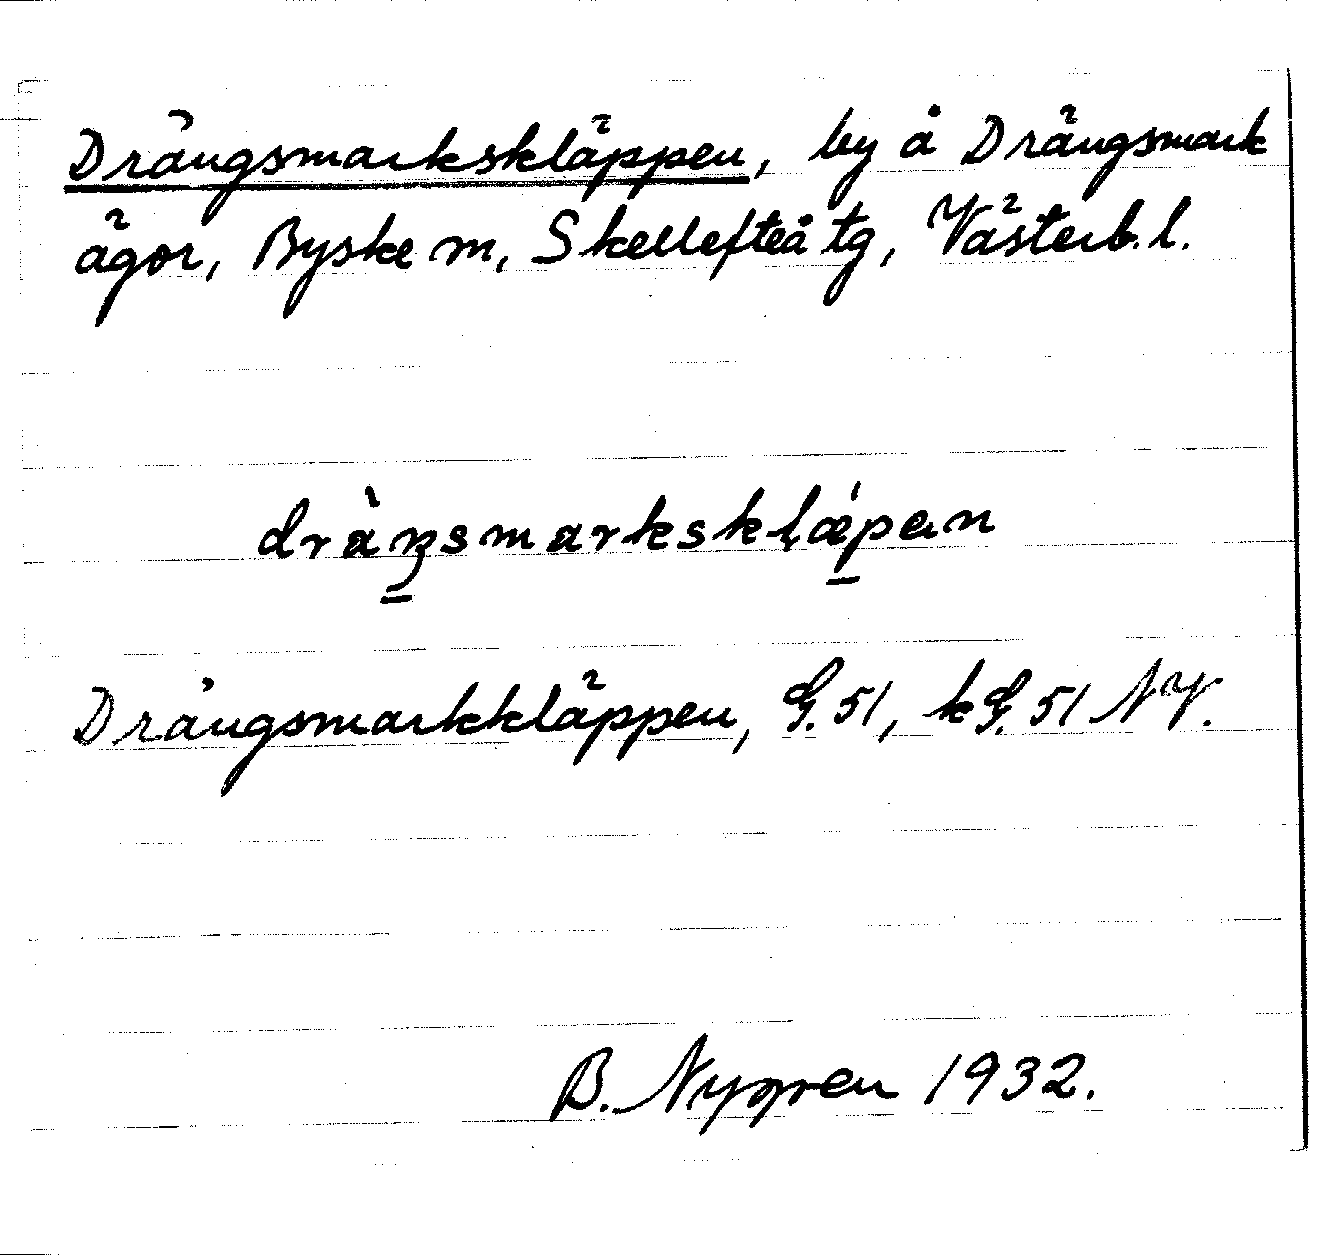 Drängsmarkskläppen, by å Drängsmark
ägor, Byske m, Skellefteå tg, Västerb. l.
dràŋsmarkskḷǽpan
Drängsmarkkläppen, G. 51, kG. 51 NV.
B. Nygren 1932.